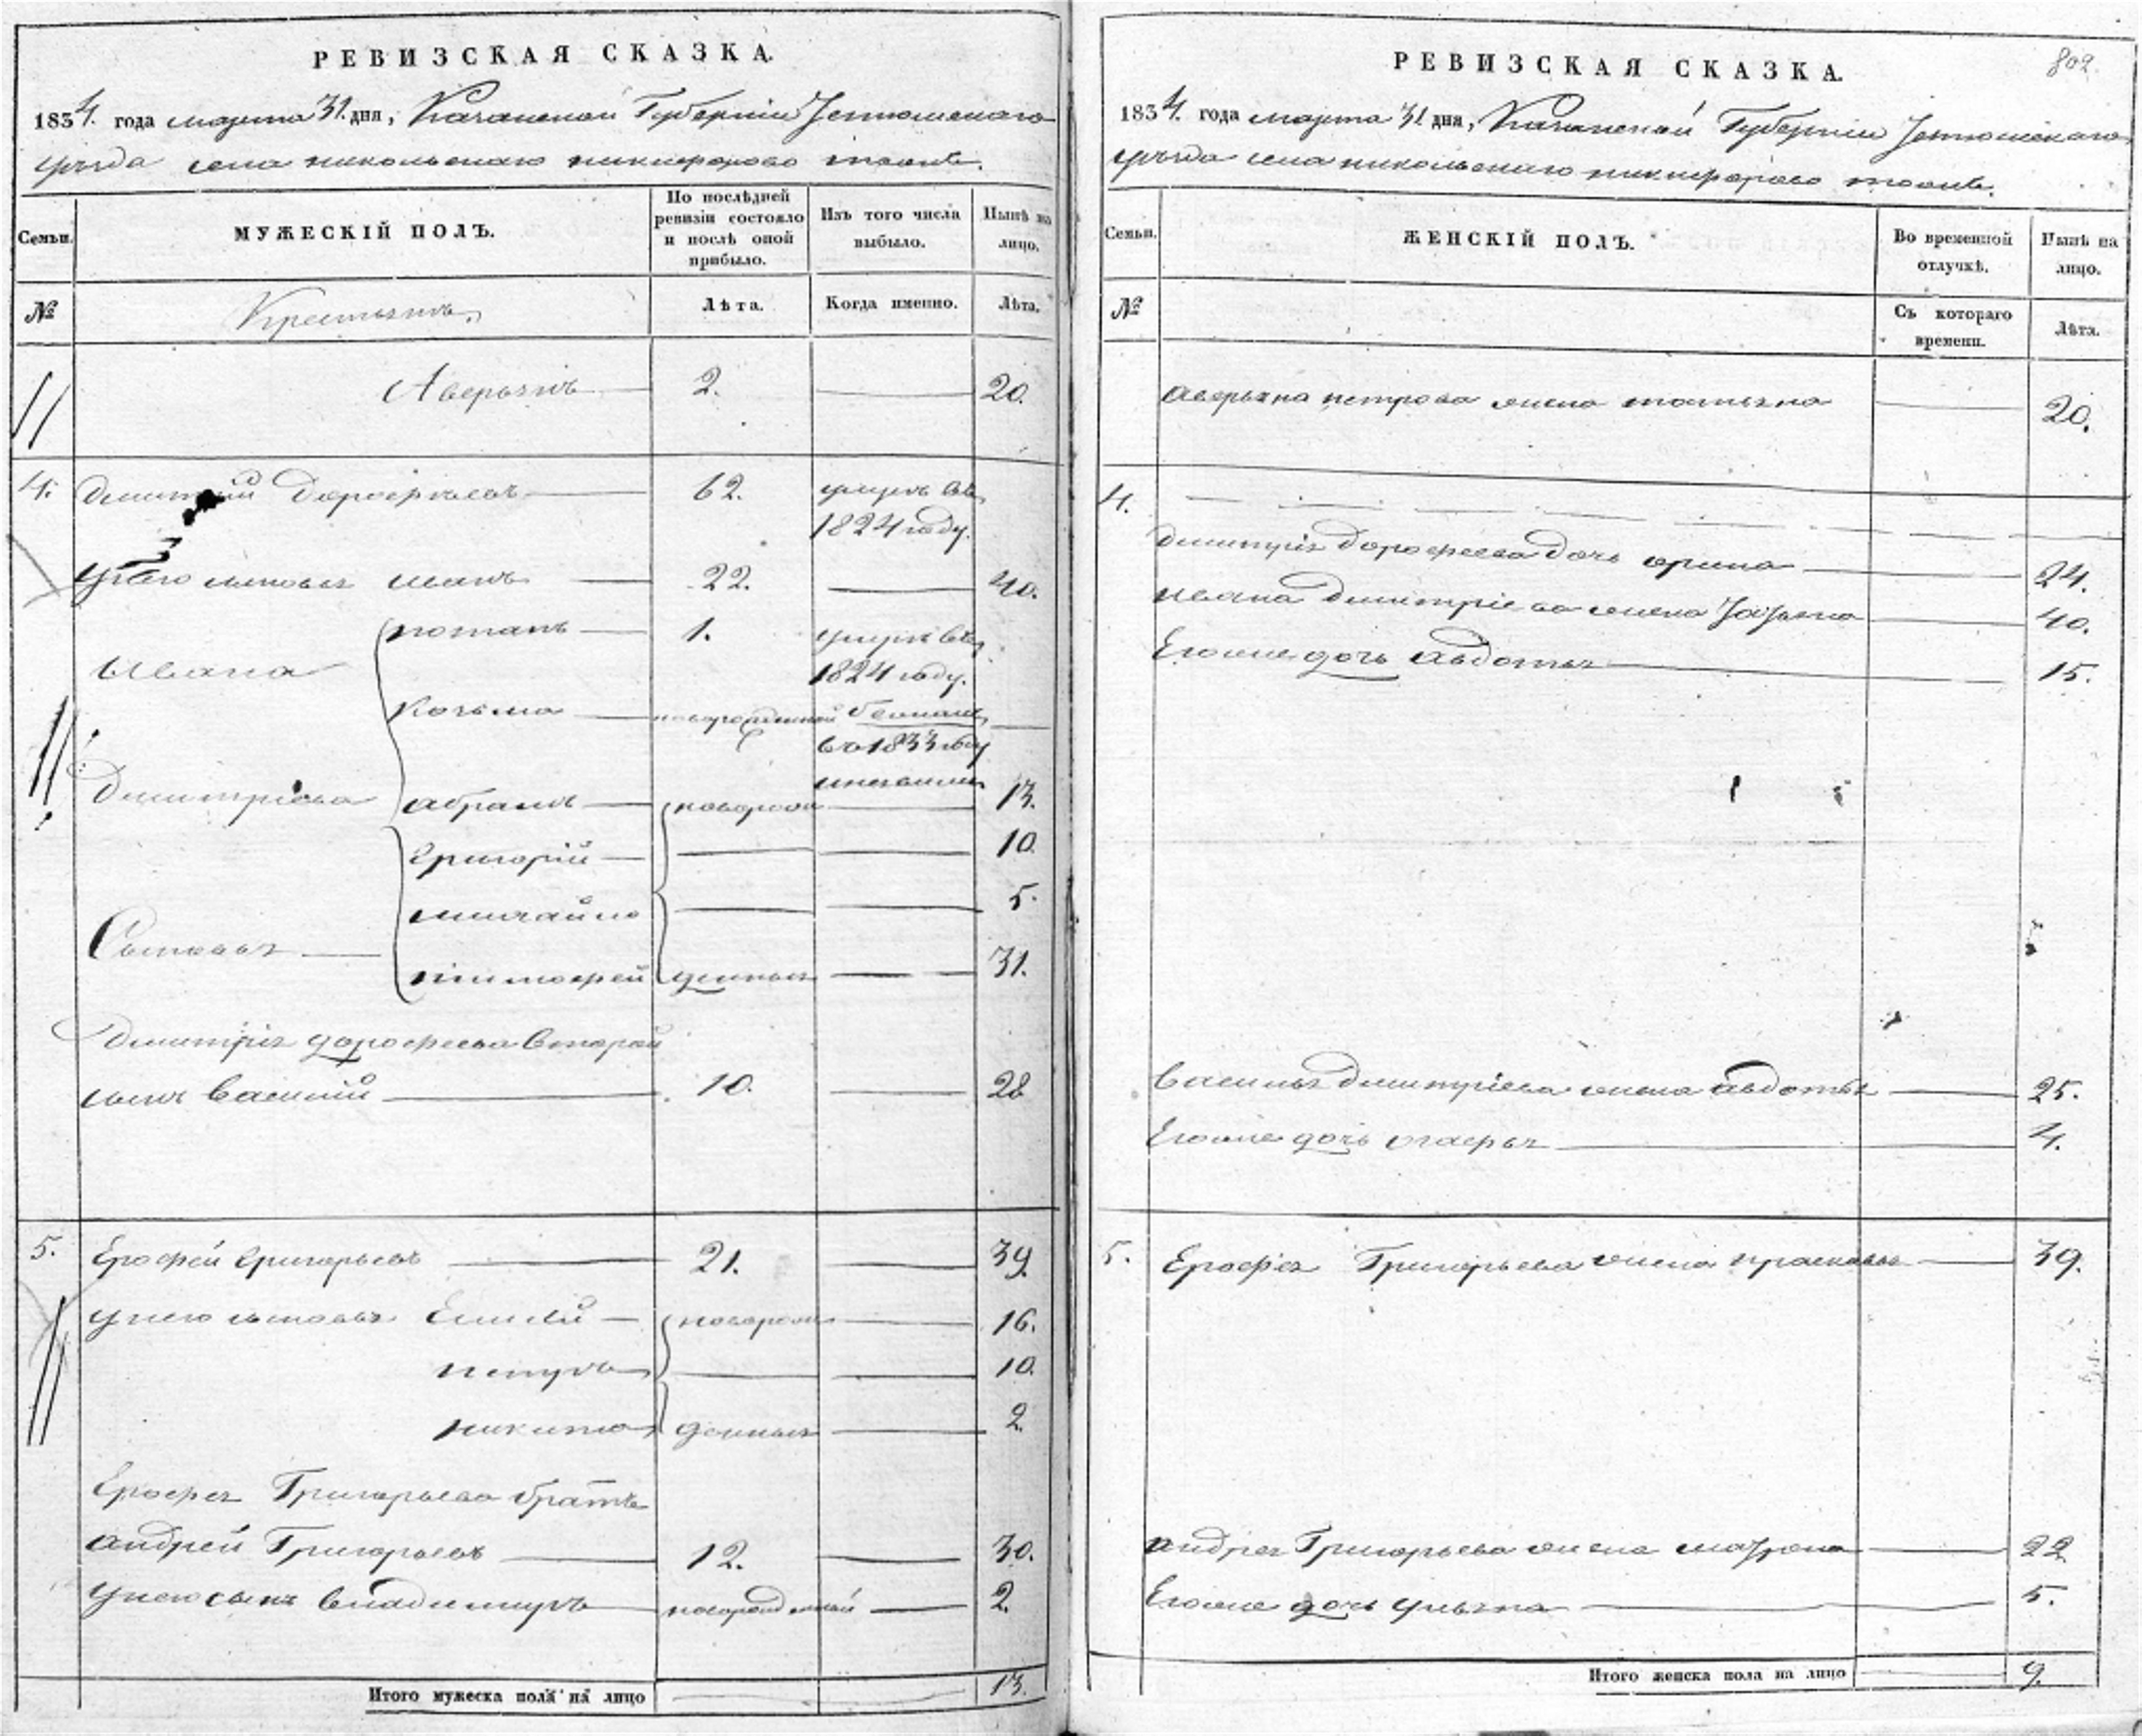 РЕВИЗСКАЯ СКАЗКА.
1834. года марта 31. дня, Казанской Губернiи Тетюшскаго
уѣзда села никольскаго никифорово тожъ.
Семьи.
МУЖЕСКIЙ ПОЛЪ.
По послѣдней ревизiи состояло и послѣ оной прибыло.
Изъ того числа выбыло.
Нынѣ на лицо.
№
Крестьянъ,
Лѣта.
Когда именно.
Лѣта.
Аверьянъ 2. 20.
4. Дмитрiй Дорофѣевъ 62. умеръ въ
1824 году.
у него сыновья иванъ 22. 40.
потапъ 1. умеръ въ
Ивана
1824 году.
Козьма новорожденной
во 1833 году
Дмитрiева абрамъ новорож 13.
Григорiй 10.
михайло 5.
Сыновья
тимофей денныя 31.
Дмитрiя дорофеева второй
сынъ Василiй 10. 28
5. Ерофей Григорьевъ 21. 39.
у него сыновья новорож 16.
петръ 10.
никита денныя 2.
Ерофея Григорьева братъ
андрей Григорьевъ 12. 30.
у него сынъ владимиръ новорожденный 2.
Итого мужеска пола на лицо 13.
РЕВИЗСКАЯ СКАЗКА.
802.
1834. года марта 31 дня, Казанской Губернiи Тетюшскаго
уѣзда села никольскаго никифорово тожъ.
Семьи.
ЖЕНСКIЙ ПОЛЪ.
Во временной отлучкѣ.
Нынѣ на лицо.
№
Съ котораго времени.
Лѣта.
аверьяна петрова жена татьяна 20.
4.
Дмитрiя Дорофеева дочь арина 24.
ивана Дмитрiева жена 40.
Его же дочь авдотья 15.
василья Дмитрiева жена авдотья 25.
Его же дочь агафья 4.
5. Ерофея Григорьева жена прасковья 39.
андрея Григорьева жена матрена 22
Его же дочь ульяна 5.
Итого женска пола на лицо 9.